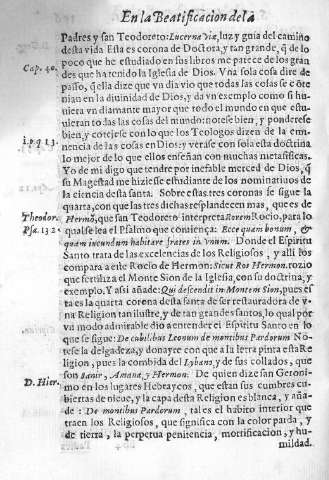 En la Beatificacion de la
Padres y san Teodoreto: Lucerna viæ, luz y guia del camino
desta vida. Esta es corona de Doctora, y tan grande, q̃ de lo
poco que he estudiado en sus libros me parece de los gran
Cap. 40.
des que ha tenido la Iglesia de Dios. Vna sola cosa dire de
passo, q̃lla dize que vn dia vio que todas las cosas se cõte
nian en la diuinidad de Dios, y da vn exemplo como si hu
uiera vn diamante mayor que todo el mundo en que estu-
uieran todas las cosas del mundo: notese bien, y pondérese
bien, y cotejese con lo que los Teologos dizen de la emi-
nencia de las cosas en Dios: y verâse con sola esta doctrina
lo mejor de lo que ellos enseñan con muchas metafisicas.
Yo de mi digo que tendre por inefable merced de Dios, q̃
su Magestad me hiziesse estudiante de los nominatiuos de
la ciencia desta santa. Sobre estas tres coronas se sigue la
quarta, con que las tres dichas resplandecen mas, que es de
Theodor.
Hermõ, que san Teodoreto interpreta Rorem Rocio, para lo
Psa. 132.
qual se lea el Psalmo que comiença: Ecce quam bonum, &
quàm iucundum habitare fratres in vnum. Donde el Espiritu
Santo trata de las excelencias de los Religiosos, y alli los
compara a este Rocio de Hermon: Sicut Ros Hermon. rozio
que fertiliza el Monte Sion de la Iglesia, con su doctrina, y
exemplo. Y assi añade: Qui descendit in Montem Sion, pues es
ta es la quarta corona desta santa de ser restauradora de v-
na Religion tan ilustre, y de tan grandes santos, lo qual por
vn modo admirable dio a entender el Espiritu Santo en lo
que se sigue: De cubilibus Leonum de montibus Pardorum No
tese la delgadeza, y donayre con que a la letra pinta esta Re
ligion, pues la combida del Lybano, y de sus collados, que
son Sanir, Amana, y Hermon. De quien dize san Geroni-
D. Hier.
mo en los lugares Hebraycos, que estan sus cumbres cu-
biertas de nieue, y la capa desta Religion es blanca, y aña-
de: De montibus Pardorum, tal es el habito interior que
traen los Religiosos, que significa con la color parda, y
de tierra, la perpetua penitencia, mortificacion, y hu-
mildad.